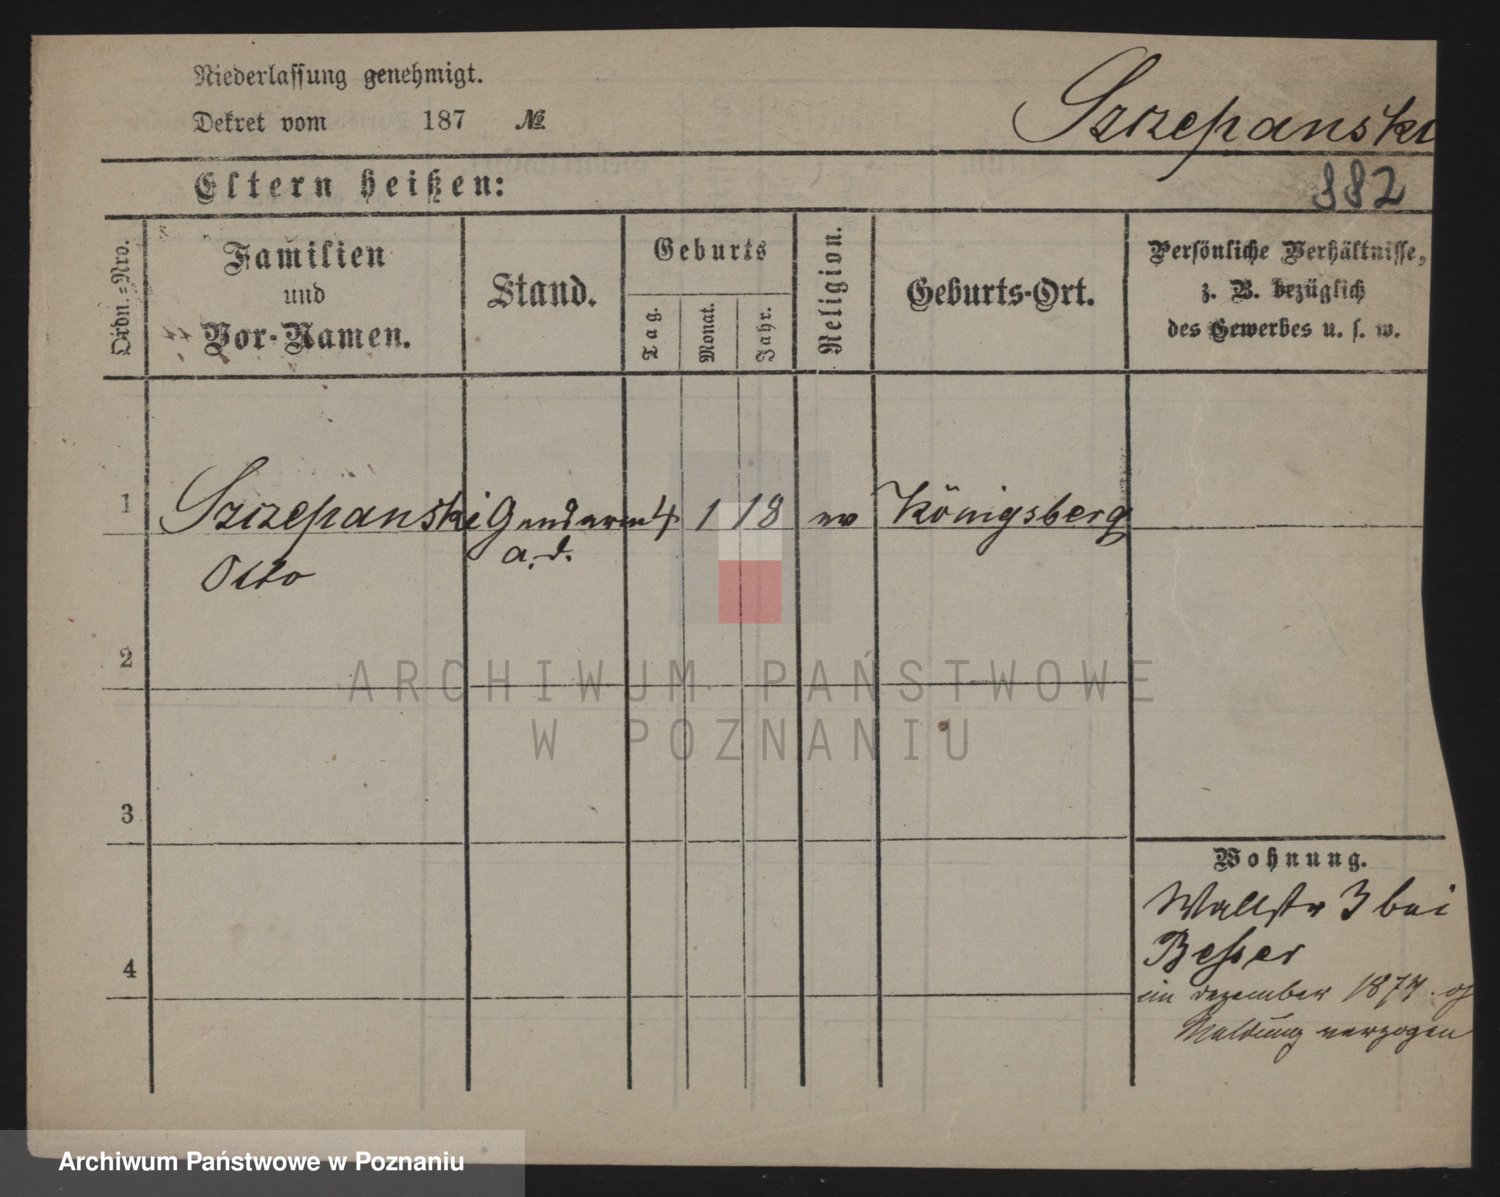 Niederlassung genehmigt.
Dekret vom 187 №
Szczepanski
382
Eltern heißen:
Ordn.-Nro.
Familien
und
Vor-Namen.
Stand.
Geburts
Tag.
Monat.
Jahr.
Religion.
Geburts-Ort.
Persönliche Verhältnisse,
z. B. bezüglich
des Gewerbes u. s. w.
1 Szczepanski Gendarm 4 1 18 ev Königsberg
Otto a. d.
2
ARCHIWUM PAŃSTWOWE
W POZNANIU
3
Wohnung.
Wallstr 3 bei
Besser
4
im dezember 1877
Meldung verzogen
Archiwum Państwowe w Poznaniu